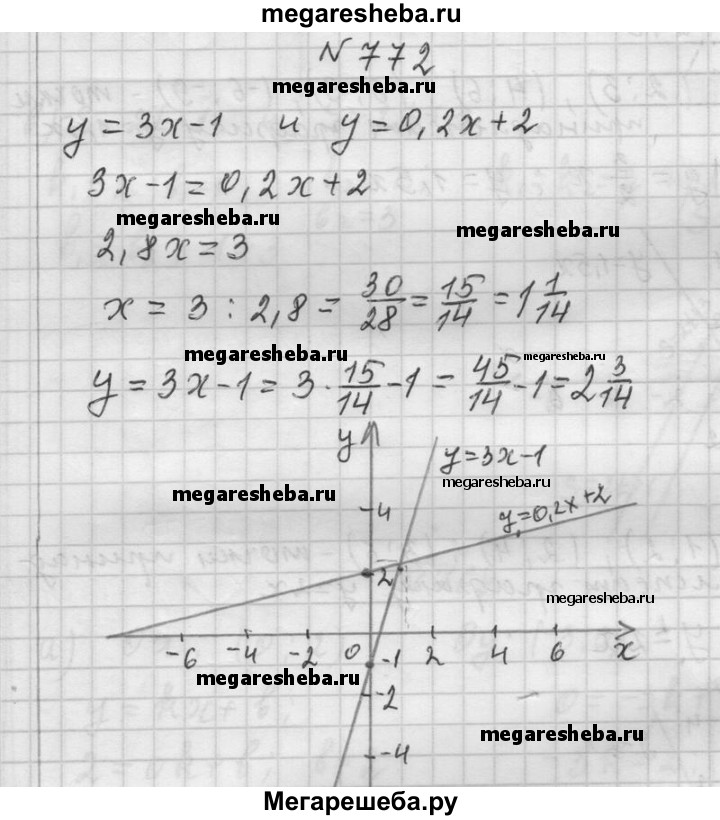 megaresheba.ru
N 772
megaresheba.ru
y = 3x-1 и y=0,2x+2
3x-1=0,2x+2
megaresheba.ru
megaresheba.ru
2,8x=3
x = 3 : 2,8 = 30/28 = 15/14 = 1 1/14
megaresheba.ru
megaresheba.ru
y = 3x-1 = 3 · 15/14 - 1 = 45/14 - 1 = 2 3/14
y
y=3x-1
megaresheba.ru
megaresheba.ru
4
y=0,2x+2
2
megaresheba.ru
-6 -4 -2 0 -1 2 4 6 x
megaresheba.ru
-2
megaresheba.ru
-4
Мегарешеба.ру